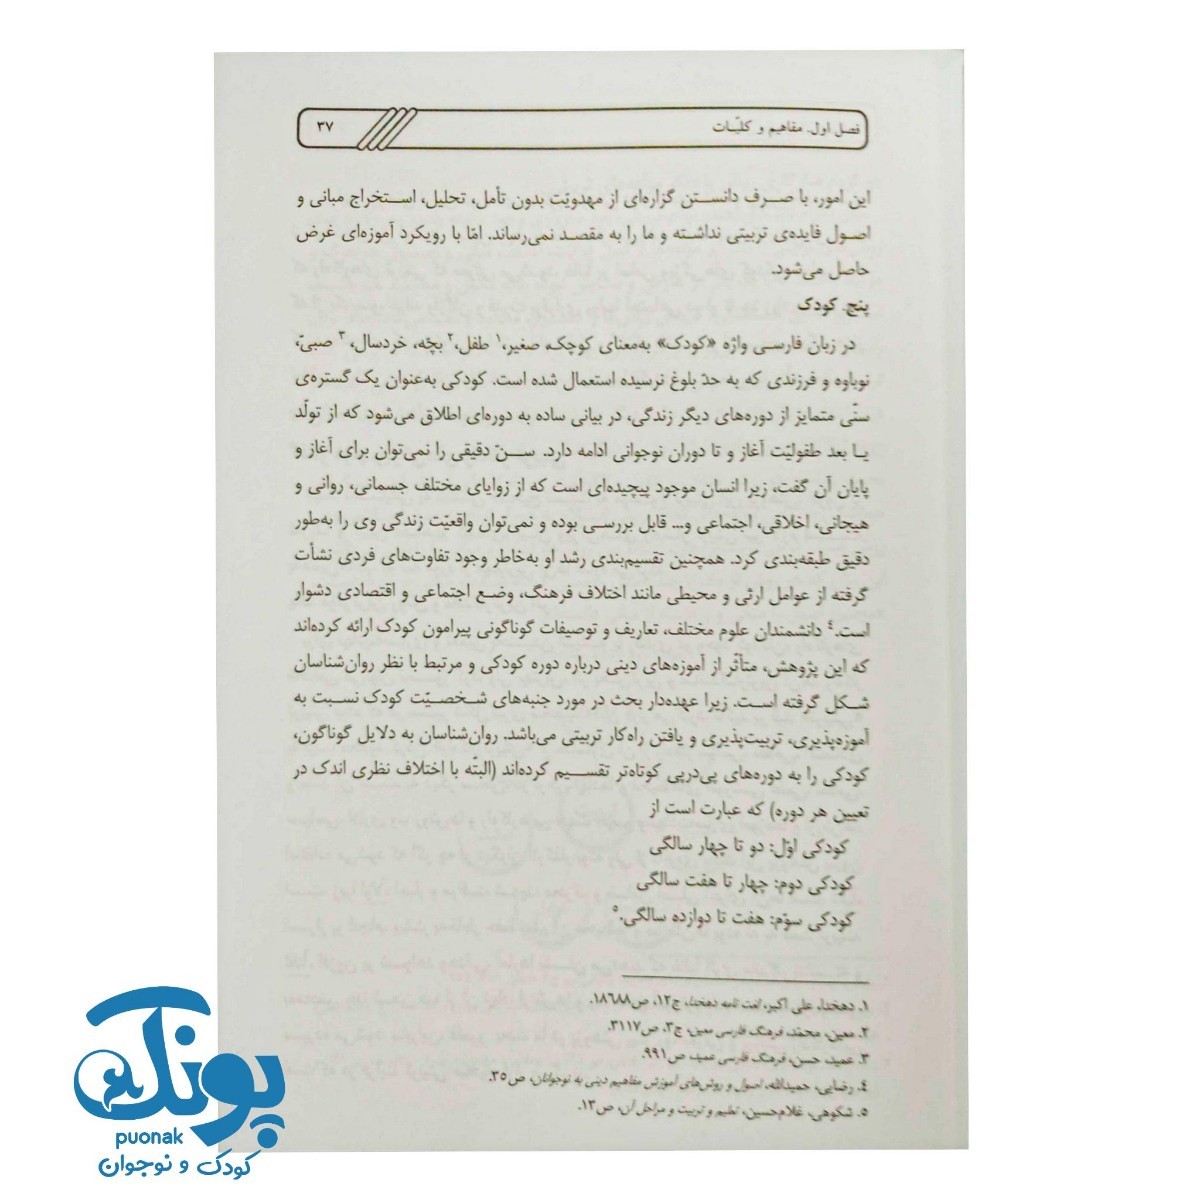 فصل اول. مفاهیم و کلیّات ۳۷
این امور، با صرف دانستن گزاره‌ای از مهدویّت بدون تأمل، تحلیل، استخراج مبانی و
اصول فایده‌ی تربیتی نداشته و ما را به مقصد نمی‌رساند. امّا با رویکرد آموزه‌ای غرض
حاصل می‌شود.
پنج. کودک
در زبان فارسی واژه «کودک» به‌معنای کوچک، صغیر،۱ طفل،۲ بچّه، خردسال، ۳ صبیّ،
نوباوه و فرزندی که به حدّ بلوغ نرسیده استعمال شده است. کودکی به‌عنوان یک گستره‌ی
سنّی متمایز از دوره‌های دیگر زندگی، در بیانی ساده به دوره‌ای اطلاق می‌شود که از تولّد
یا بعد طفولیّت آغاز و تا دوران نوجوانی ادامه دارد. سنّ دقیقی را نمی‌توان برای آغاز و
پایان آن گفت، زیرا انسان موجود پیچیده‌ای است که از زوایای مختلف جسمانی، روانی و
هیجانی، اخلاقی، اجتماعی و... قابل بررسی بوده و نمی‌توان واقعیّت زندگی وی را به‌طور
دقیق طبقه‌بندی کرد. همچنین تقسیم‌بندی رشد او به‌خاطر وجود تفاوت‌های فردی نشأت
گرفته از عوامل ارثی و محیطی مانند اختلاف فرهنگ، وضع اجتماعی و اقتصادی دشوار
است.۴ دانشمندان علوم مختلف، تعاریف و توصیفات گوناگونی پیرامون کودک ارائه کرده‌اند
که این پژوهش، متأثّر از آموزه‌های دینی درباره دوره کودکی و مرتبط با نظر روان‌شناسان
شکل گرفته است. زیرا عهده‌دار بحث در مورد جنبه‌های شخصیّت کودک نسبت به
آموزه‌پذیری، تربیت‌پذیری و یافتن راه‌کار تربیتی می‌باشد. روان‌شناسان به دلایل گوناگون،
کودکی را به دوره‌های پی‌درپی کوتاه‌تر تقسیم کرده‌اند (البتّه با اختلاف نظری اندک در
تعیین هر دوره) که عبارت است از
کودکی اوّل: دو تا چهار سالگی
کودکی دوم: چهار تا هفت سالگی
کودکی سوّم: هفت تا دوازده سالگی.۵
۱. دهخدا، علی اکبر، لغت نامه دهخدا، ج۱۲، ص۱۸۶۸۸.
۲. معین، محمّد، فرهنگ فارسی معین، ج۳، ص۳۱۱۷.
۳. عمید، حسن، فرهنگ فارسی عمید، ص۹۹۱.
۴. رضایی، حمیدالله، اصول و روش‌های آموزش مفاهیم دینی به نوجوانان، ص۳۵.
۵. شکوهی، غلام‌حسین، تعلیم و تربیت و مراحل آن، ص۱۳.
پونک
puonak
کودک و نوجوان